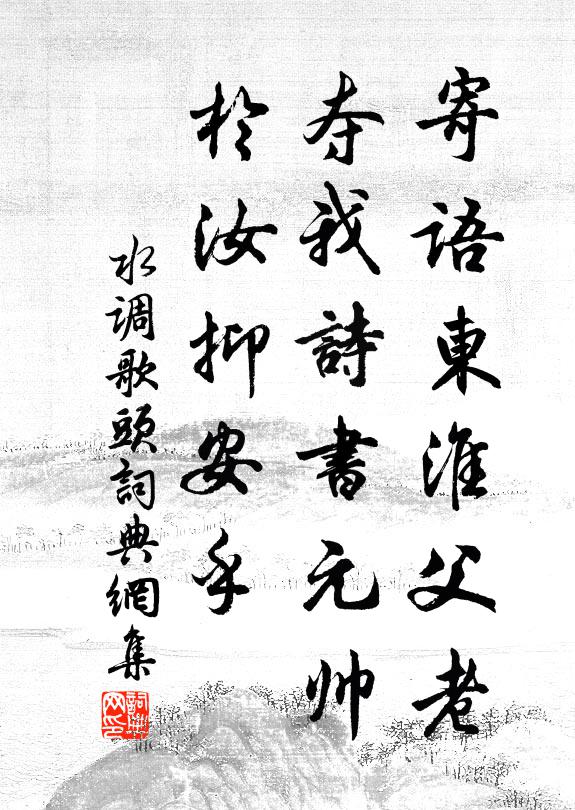 寄語東淮父老
夺我詩書元帅
於汝抑安乎
水调歌頭詞典網集